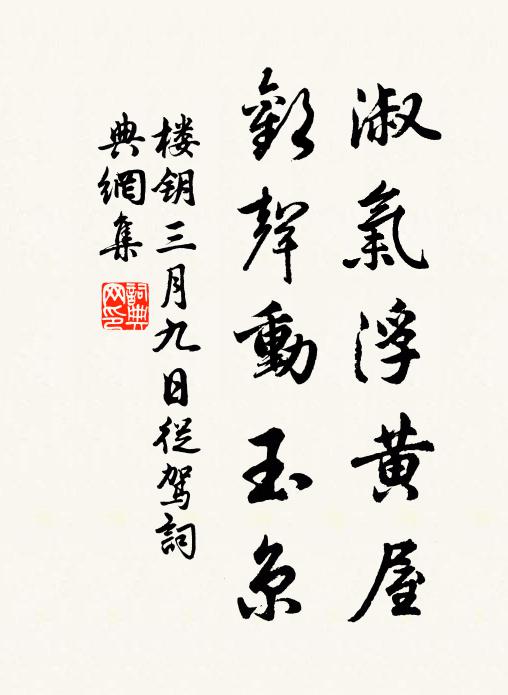 淑氣浮黄屋
歡聲動玉京
楼钥三月九日從駕詞
典網集
詞典網印